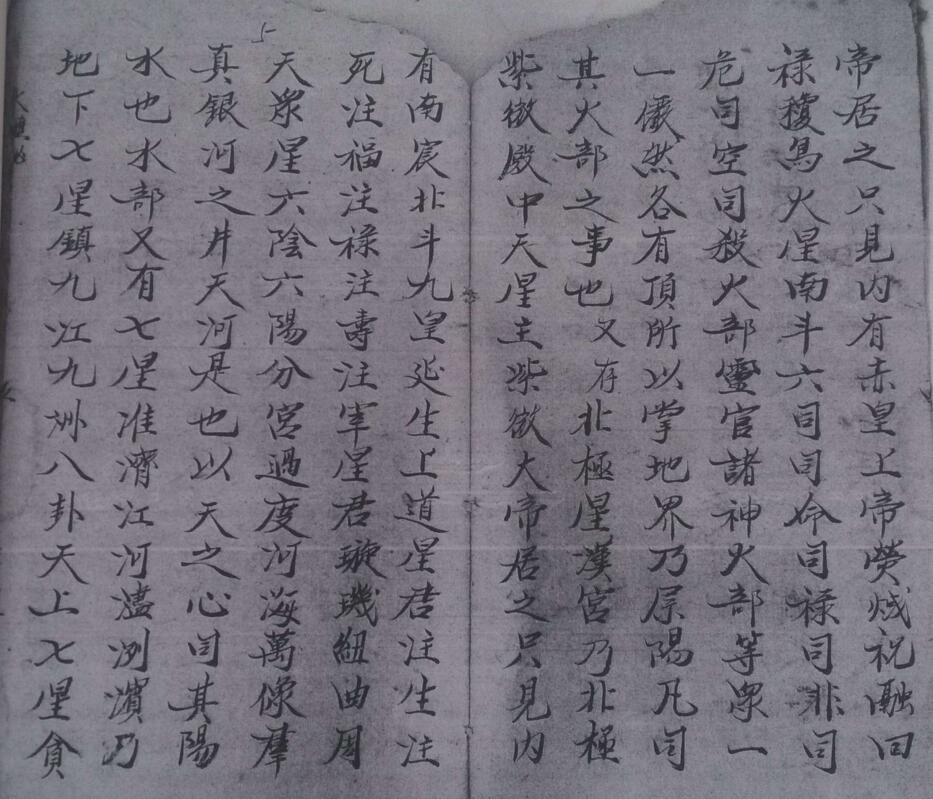 帝居之只見内有赤皇上帝熒惑祝融回
禄瓊鳥火星南斗六司司命司禄司非司
危司空司殺火部靈官諸神火部等衆一
一儼然各有頂所以掌地界乃屬陽凡司
其火部之事也又存北極星漢宮乃北極
紫微殿中天星主紫微大帝居之只見内
有南宸北斗九皇延生上道星君注生注
死注福注禄注壽注宰星君璇璣紐曲周
天衆星六陰六陽分宮過度河海萬像羣
真銀河之井天河是也以天之心司其陽
水也水部又有七星准濟江河瀘洌濱乃
地下七星鎮九江九洲八卦天上七星貪